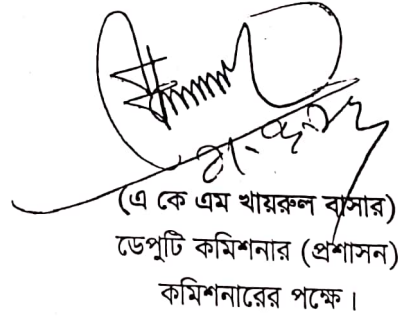 (এ কে এম খায়রুল বাসার)
ডেপুটি কমিশনার (প্রশাসন)
কমিশনারের পক্ষে।